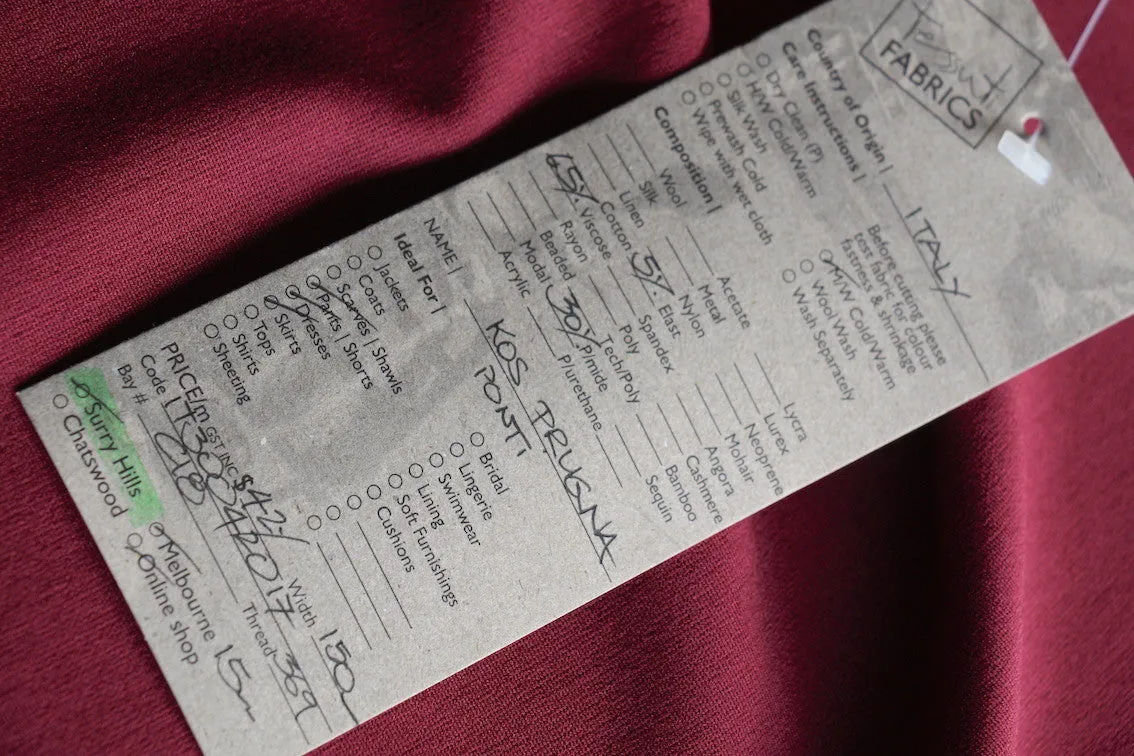 Tessuti
FABRICS
Country of Origin | ITALY
Care Instructions |
Dry Clean (P)
H/W Cold/Warm
Silk Wash
Prewash Cold
Wipe with wet cloth
Before cutting please
test fabric for colour
fastness & shrinkage
M/W Cold/Warm
Wool Wash
Wash Separately
Composition |
Wool
Silk
Linen
Cotton
65% Viscose
Rayon
Beaded
Modal
Acrylic
Acetate
Metal
Nylon
5% Elast
Spandex
Poly
Tech/Poly
30% P/mide
P/urethane
Lycra
Lurex
Neoprene
Mohair
Angora
Cashmere
Bamboo
Sequin
NAME | KOS PRUGNA
PONTI
Ideal For |
Jackets
Coats
Scarves | Shawls
Pants | Shorts
Dresses
Skirts
Tops
Shirts
Sheeting
Bridal
Lingerie
Swimwear
Lining
Soft Furnishings
Cushions
PRICE/m GST INC $42/ Width 150
Code
Thread 369
Bay # C18
Surry Hills
Chatswood
Melbourne 15m
Online shop